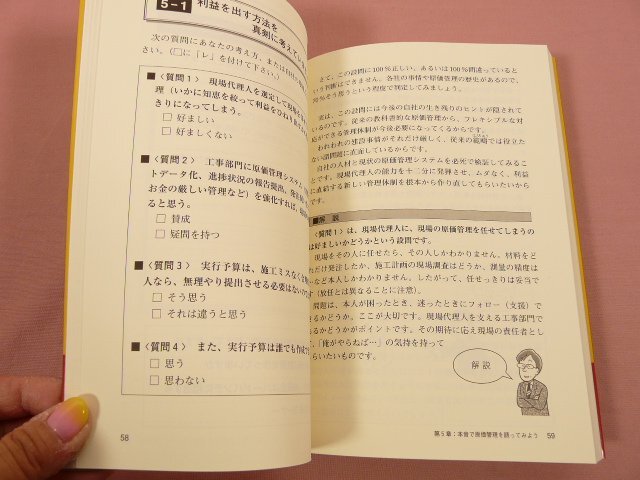 5-1 利益を出す方法を
真剣に考えてい
次の質問にあなたの考え方、または
さい。(□に「レ」を付けて下さい。)
■〈質問1〉 現場代理人を選定して現場を
理(いかに知恵を絞って利益をひねり
きりになってしまう。
□ 好ましい
□ 好ましくない
■〈質問2〉 工事部門に原価管理システム
トデータ化、進捗状況の報告提出、発
お金の厳しい管理など)を強化すれば、
ると思う。
□ 賛成
□ 疑問を持つ
■〈質問3〉 実行予算は、施工ミスなく
人なら、無理やり提出させる必要はない
□ そう思う
□ それは違うと思う
■〈質問4〉 また、実行予算は誰でも作成
□ 思う
□ 思わない
58
さて、この設問に100%正しい、あるいは100%間違っていると
いう判断はできません。各社の事情や原価管理の歴史があるので、
気そう思うという程度で判定してみましょう。
実は、この設問には今後の自社の生き残りのヒントが隠されて
いるのです。従来の教科書的な原価管理から、フレキシブルな対
応ができる管理体制が今後必要になってくるからです。
われわれの建設事情がそれだけ厳しく、従来の範疇では役立た
ない諸問題に直面しているからです。
自社の人材と現状の原価管理システムを必死で検証してみるこ
とです。現場代理人の能力を十二分に発揮させ、ムダなく、利益
に直結する新しい管理体制を根本から作り直してもらいたいから
です。
■解 説
〈質問1〉は、現場代理人に、現場の原価管理を任せてしまうの
は好ましいかどうかという設問です。
現場をその人に任せたら、その人しかわかりません。材料をど
れだけ発注したか、施工計画の現場調査はどうか、測量の精度は
など本人しかわかりません。したがって、任せっきりは妥当で
(放任とは異なることに注意)。
問題は、本人が困ったとき、迷ったときにフォロー(支援)で
きるかどうか。ここが大切です。現場代理人を支える工事部門で
きるかどうかがポイントです。その期待に応え現場の責任者とし
、「俺がやらねば…」の気持を持って
らいたいものです。
解説
第5章:本音で原価管理を語ってみよう 59